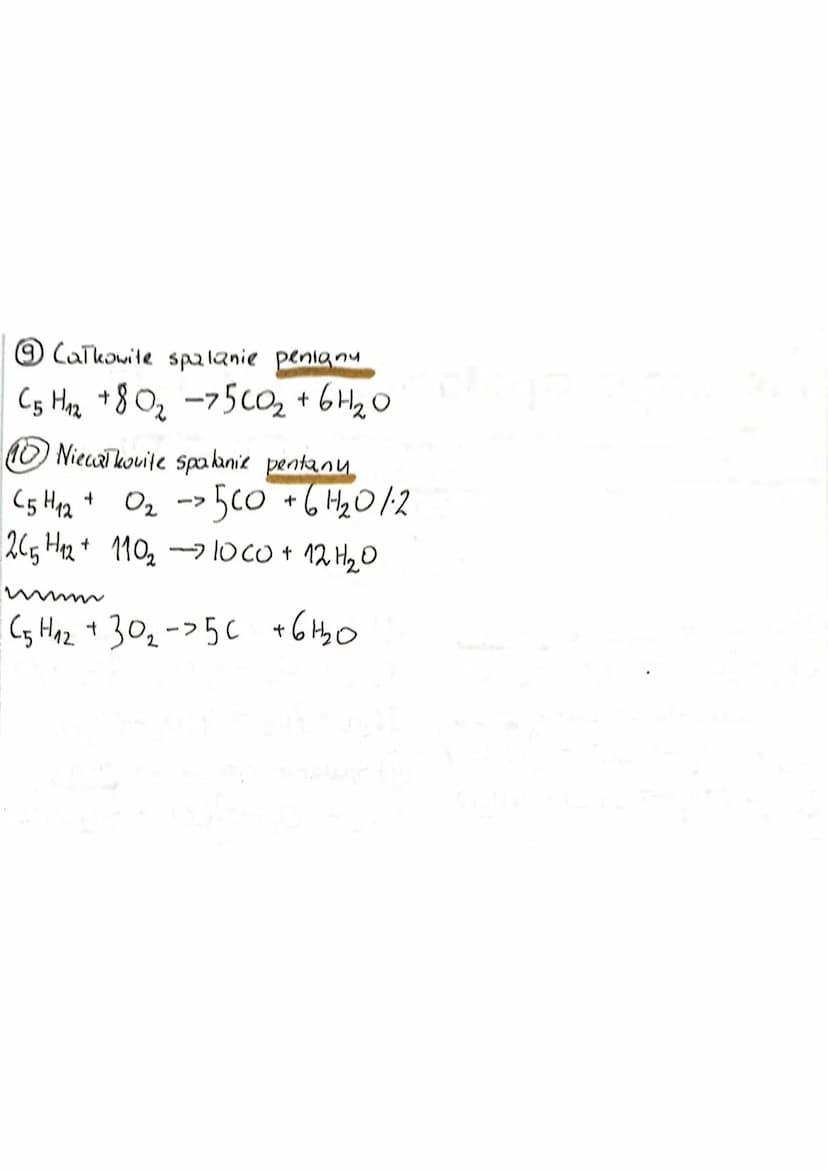 ⑨ Całkowite spalanie pentanu
C₅H₁₂ + 8O₂ -> 5CO₂ + 6H₂O
⑩ Niecałkowite spalanie pentanu
C₅H₁₂ + O₂ -> 5CO + 6H₂O /·2
2C₅H₁₂ + 11O₂ -> 10CO + 12H₂O
C₅H₁₂ + 3O₂ -> 5C + 6H₂O